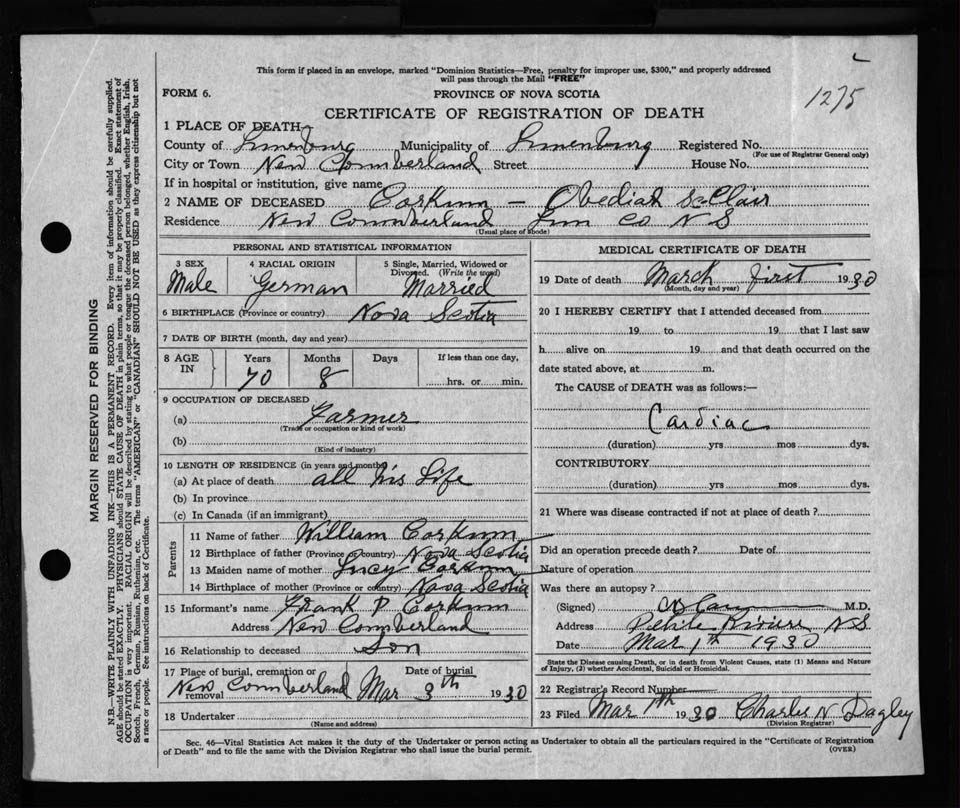 This form if placed in an envelope, marked "Dominion Statistics—Free, penalty for improper use, $300," and properly addressed
will pass through the Mail "FREE"
FORM 6. PROVINCE OF NOVA SCOTIA
1275
CERTIFICATE OF REGISTRATION OF DEATH
1 PLACE OF DEATH
County of Lunenburg Municipality of Lunenburg Registered No.
(For use of Registrar General only)
City or Town New Comberland Street House No.
If in hospital or institution, give name
2 NAME OF DECEASED Corkum — Obediah
Residence New Comberland Lun Co N S
(Usual place of abode)
PERSONAL AND STATISTICAL INFORMATION
3 SEX 4 RACIAL ORIGIN 5 Single, Married, Widowed or
Divorced. (Write the word)
Male German Married
6 BIRTHPLACE (Province or country) Nova Scotia
7 DATE OF BIRTH (month, day and year)
8 AGE IN Years Months Days If less than one day,
70 8 hrs. or min.
9 OCCUPATION OF DECEASED
(a) Farmer
(Trade or occupation or kind of work)
(b)
(Kind of industry)
10 LENGTH OF RESIDENCE (in years and months)
(a) At place of death all his Life
(b) In province
(c) In Canada (if an immigrant)
Parents
11 Name of father William Corkum
12 Birthplace of father (Province or country) Nova Scotia
13 Maiden name of mother Lucy Corkum
14 Birthplace of mother (Province or country) Nova Scotia
15 Informant's name Frank P Corkum
Address New Comberland
16 Relationship to deceased Son
17 Place of burial, cremation or removal Date of burial
New Comberland Mar 3th 1930
18 Undertaker
(Name and address)
MEDICAL CERTIFICATE OF DEATH
19 Date of death March first 1930
(Month, day and year)
20 I HEREBY CERTIFY that I attended deceased from
19 to 19 that I last saw
h alive on 19 and that death occurred on the
date stated above, at m.
The CAUSE of DEATH was as follows:—
Cardiac
(duration) yrs mos dys.
CONTRIBUTORY
(duration) yrs mos dys.
21 Where was disease contracted if not at place of death?
Did an operation precede death? Date of
Nature of operation
Was there an autopsy?
(Signed) M.D.
Address Petite Riviere N S
Date Mar 1th 1930
State the Disease causing Death, or in death from Violent Causes, state (1) Means and Nature
of Injury, (2) whether Accidental, Suicidal or Homicidal.
22 Registrar's Record Number
23 Filed Mar 1th 1930 Charles N Dagley
(Division Registrar)
Sec. 46—Vital Statistics Act makes it the duty of the Undertaker or person acting as Undertaker to obtain all the particulars required in the "Certificate of Registration
of Death" and to file the same with the Division Registrar who shall issue the burial permit. (OVER)
MARGIN RESERVED FOR BINDING
N.B.—WRITE PLAINLY WITH UNFADING INK—THIS IS A PERMANENT RECORD. Every item of information should be carefully supplied.
AGE should be stated EXACTLY. PHYSICIANS should STATE CAUSE OF DEATH in plain terms, so that it may be properly classified. Exact statement of
OCCUPATION is very important. RACIAL ORIGIN will be described by stating to what people or tongue the deceased person belonged, whether English, Irish,
Scotch, French, German, Russian, Ruthenian, etc. The terms "AMERICAN" or "CANADIAN" SHOULD NOT BE USED as they express citizenship but not
a race or people. See instructions on back of Certificate.